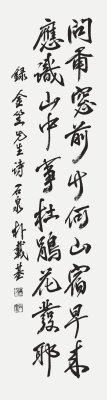 問爾窓前竹何山宿早來
應識山中事杜鵑花發耶
錄金笠先生詩 石泉 朴戴基